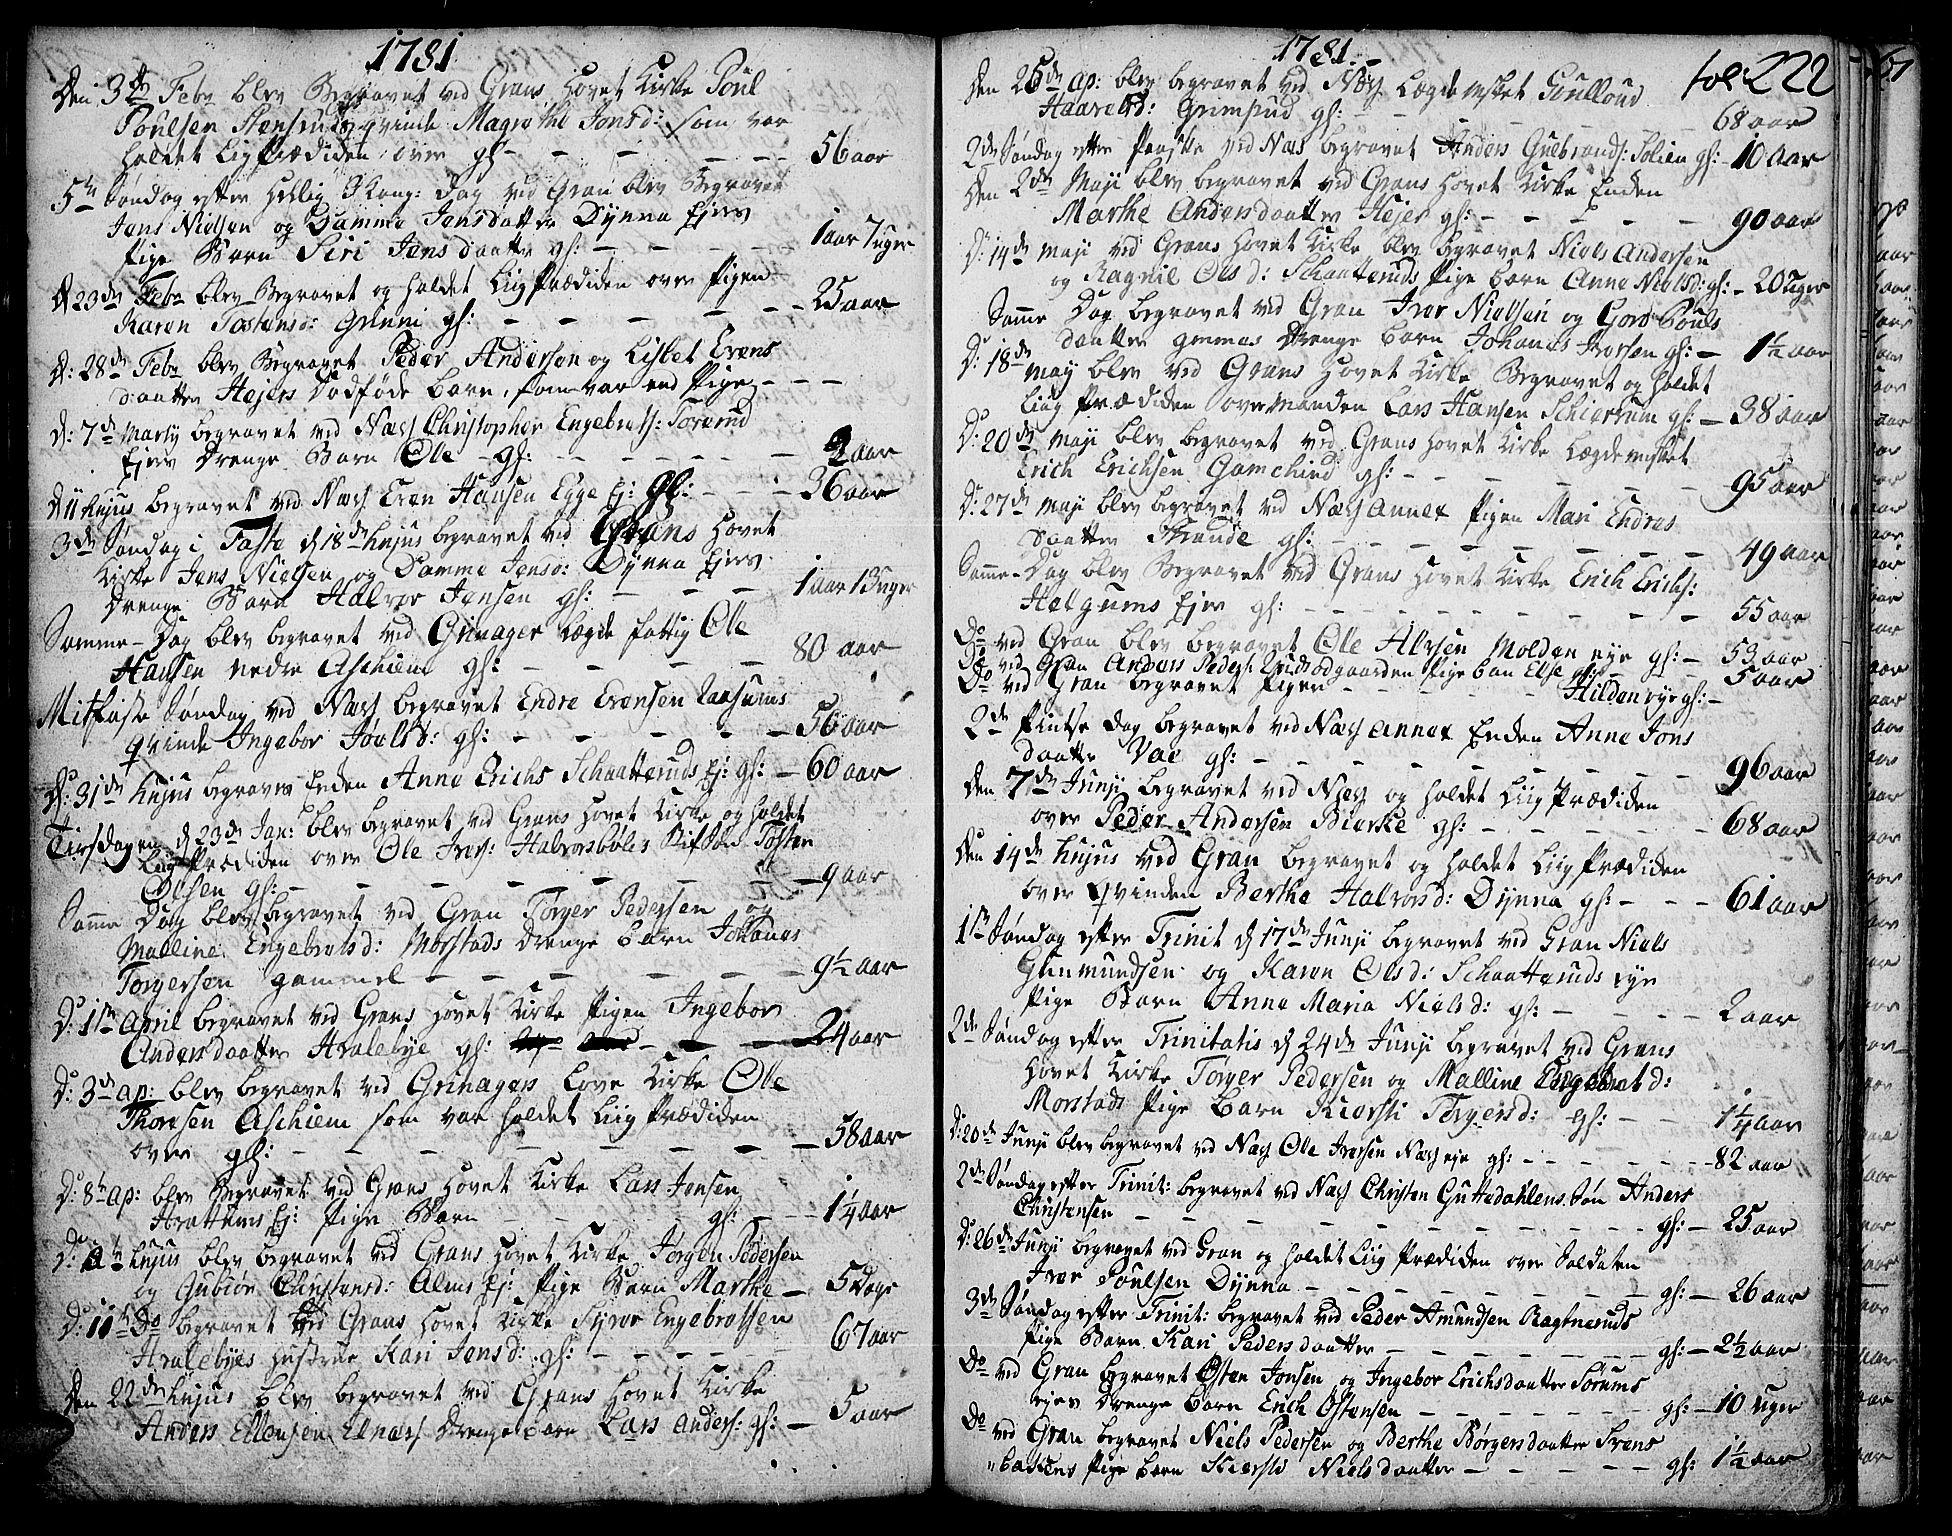 1781
Den 3de Febr blev Begravet ved Grans Hovet Kirke Poul
Poulsen Hensruds qvinde Magrethe Jonsd: som var
holdet LigPrædiken over gl: - - - 56 aar
5te Søndag efter Hellig 3 Kong: Dag ved Gran blev Begravet
Jens Nielsen og Damme Jensdatter Dynna Ejers
Pige Barn Siri Jensdaatter gl: - - - 1 aar 7 uger
d 23de Febr blev Begravet og holdet LiigPrædiken over Pigen
Karen Tostensd: Grinni gl: - - - 25 aar
D: 28de Febr blev Begravet Peder Andersen og Lisbet Evens
daatter Hejers Dødføde Barn, som var end Pige - - -
D: 7de Marty begravet ved Næss Christopher Engebrets: Torerud
Ejers Drenge Barn Ole gl: - - - 2 aar
d 11 hujus begravet ved Næss Even Hansen Egge Ej: gl: - - - 36 aar
3de Søndag i Faste d 18de hujus begravet ved Grans Hovet
Kirke Jens Nielsen og Damme Jensd: Dynna Ejers
Drenge Barn Halvor Jensen gl: - - - 1 aar 13 uger
Samme Dag blev begravet ved Grinager Lægds fattig Ole
Hansen nedre Aschiem gl: - - - 80 aar
Mitfaste Søndag ved Næss begravet Endre Evensen Raasums
qvinde Ingebor Joulsd: gl: - - - 56 aar
D: 31de hujus begraves Enken Anne Erichs Schaatteruds Ej: gl: - 60 aar
Tirsdagen d 23de Jan: blev begravet ved Grans Hovet Kirke og holdet
LiigPrædiken over Ole Ivers: Halvorsbøles Stifsøn Tosten
Olsen gl: - - - 9 aar
Samme Dag blev begravet ved Gran Torger Pedersen og
Malline Engebretsd: Morstads Drenge Barn Johanes
Torgersen gammel - - - 9½ aar
D: 1ste April begravet ved Grans Hovet Kirke Pigen Ingebor
Andersdaatter Hvalebye gl: - - - 24 aar
D: 3de ap: blev begravet ved Grinagers Love Kirke Ole
Thoresen Aschiem som var holdet LiigPrædiken
over gl: - - - 58 aar
D: 8de ap: blev Begravet ved Grans Hovet Kirke Lars Jensen
Hvattums Ej: Pige Barn gl: - - - 1¼ aar
D: hujus blev begravet ved Grans Hovet Kirke Jørgen Pedersen
og Gubiør Christensd: Alms Ej: Pige Barn Marthe - 5 Dage
D: 11te Do begravet ved Grans Hovet Kirke Syver Engebretsen
Hvalebyes Hustrue Kari Jensd: gl: - - - 67 aar
Den 22de hujus blev begravet ved Grans Hovet Kirke
Anders Ellensen Elnæs Drengebarn Lars Anders: gl: - 5 aar
1781
fol: 222
Den 26de ap: blev begravet ved Næss Lægdemsket
Haarelsd: Grimsrud gl: - - - 68 aar
2de Søndag efter Paaske ved Næss begravet Anders Gulbrands: Solien gl: - 10 aar
Den 2de Maji blev begravet ved Grans Hovet Kirke Enken
Marthe Andersdaatter Hejer gl: - - - 90 aar
D: 14de maji ved Grans Hovet Kirke blev begravet Niels Andersen
og Ragnil Olsd: Schaatteruds Pige Barn Anne Nielsd: gl: - 20 uger
Samme Dag begravet ved Gran Iver Nielsen og Goro Pouls
daatter Drenge Barn Johanes Iversen gl: - 1½ aar
D: 18de may blev ved Grans Hovet Kirke Begravet og holdet
Liig Prædiken over manden Lars Hansen Schiarrum gl: - 38 aar
D: 20de maji blev begravet ved Grans Hovet Kirke Lægdemsket
Erich Erichsen Gamchind gl: - - - 95 aar
D: 27de maji blev begravet ved Næss Annex Pigen Mari Endres
daatter Strande gl: - - - 49 aar
Samme Dag blev Begravet ved Grans Hovet Kirke Erich Erichs:
Helgums Ejer gl: - - - 55 aar
Do ved Gran blev begravet Ole Alvsen Molden eye gl: - 53 aar
Do ved Gran Anders Peders: Pige ban Else gl: - 5 aar
Do ved Gran begravet Pigen - - - Hilden eye gl: -
2de Pintse Dag begravet ved Næss Annex Enken Anne Jons
daatter Vae gl: - - - 96 aar
Den 7de Junji begravet ved Næss og holdet Liig Prædiken
over Peder Andersen Bierke gl: - - - 68 aar
Den 14de hujus ved Gran begravet og holdet Liig Prædiken
over qvinden Berthe Halvorsd: Dynna gl: - - - 61 aar
1ste Søndag efter Trinit d 17de Junji begravet ved Gran Niels
Gunmundsen og Karen Olsd: Schaatteruds eye
Pige Barn Anne Maria Nielsd: gl: - - - 2 aar
2de Søndag efter Trinitatis d 24de Junji begravet ved Grans
Hovet Kirke Torger Pedersen og Malline Engebretd:
Morstads Pige Barn Kiersti Torgersd: gl: - 1¼ aar
D: 20de Junji blev begravet ved Næss Ole Iversen Næss eje gl: - - - 82 aar
2de Søndag efter Trinit: begravet ved Næss Christen Guttedahlens Søn Anders
Christensen - - - gl: - 25 aar
D: 26de Junji begravet ved Gran og holdet Liig Prædiken over Soldaten
Iver Poulsen Dynna - - - gl: - 26 aar
3de Søndag efter Trinit: begravet ved Peder Amundsen Ragneruds
Pige Barn Kari Pedersdaatter - - - gl: - 2½ aar
Do ved Gran begravet Østen Jonsen og Ingebor Erichsdaatter Sørums
ejes Drenge Barn Erich Østensen - - - gl: - 10 uger
Do ved Gran begravet Niels Pedersen og Berthe Børgersdaatter Svens
"backens Pige Barn Kiersti Nielsdaatter - - - gl: 1½ aar